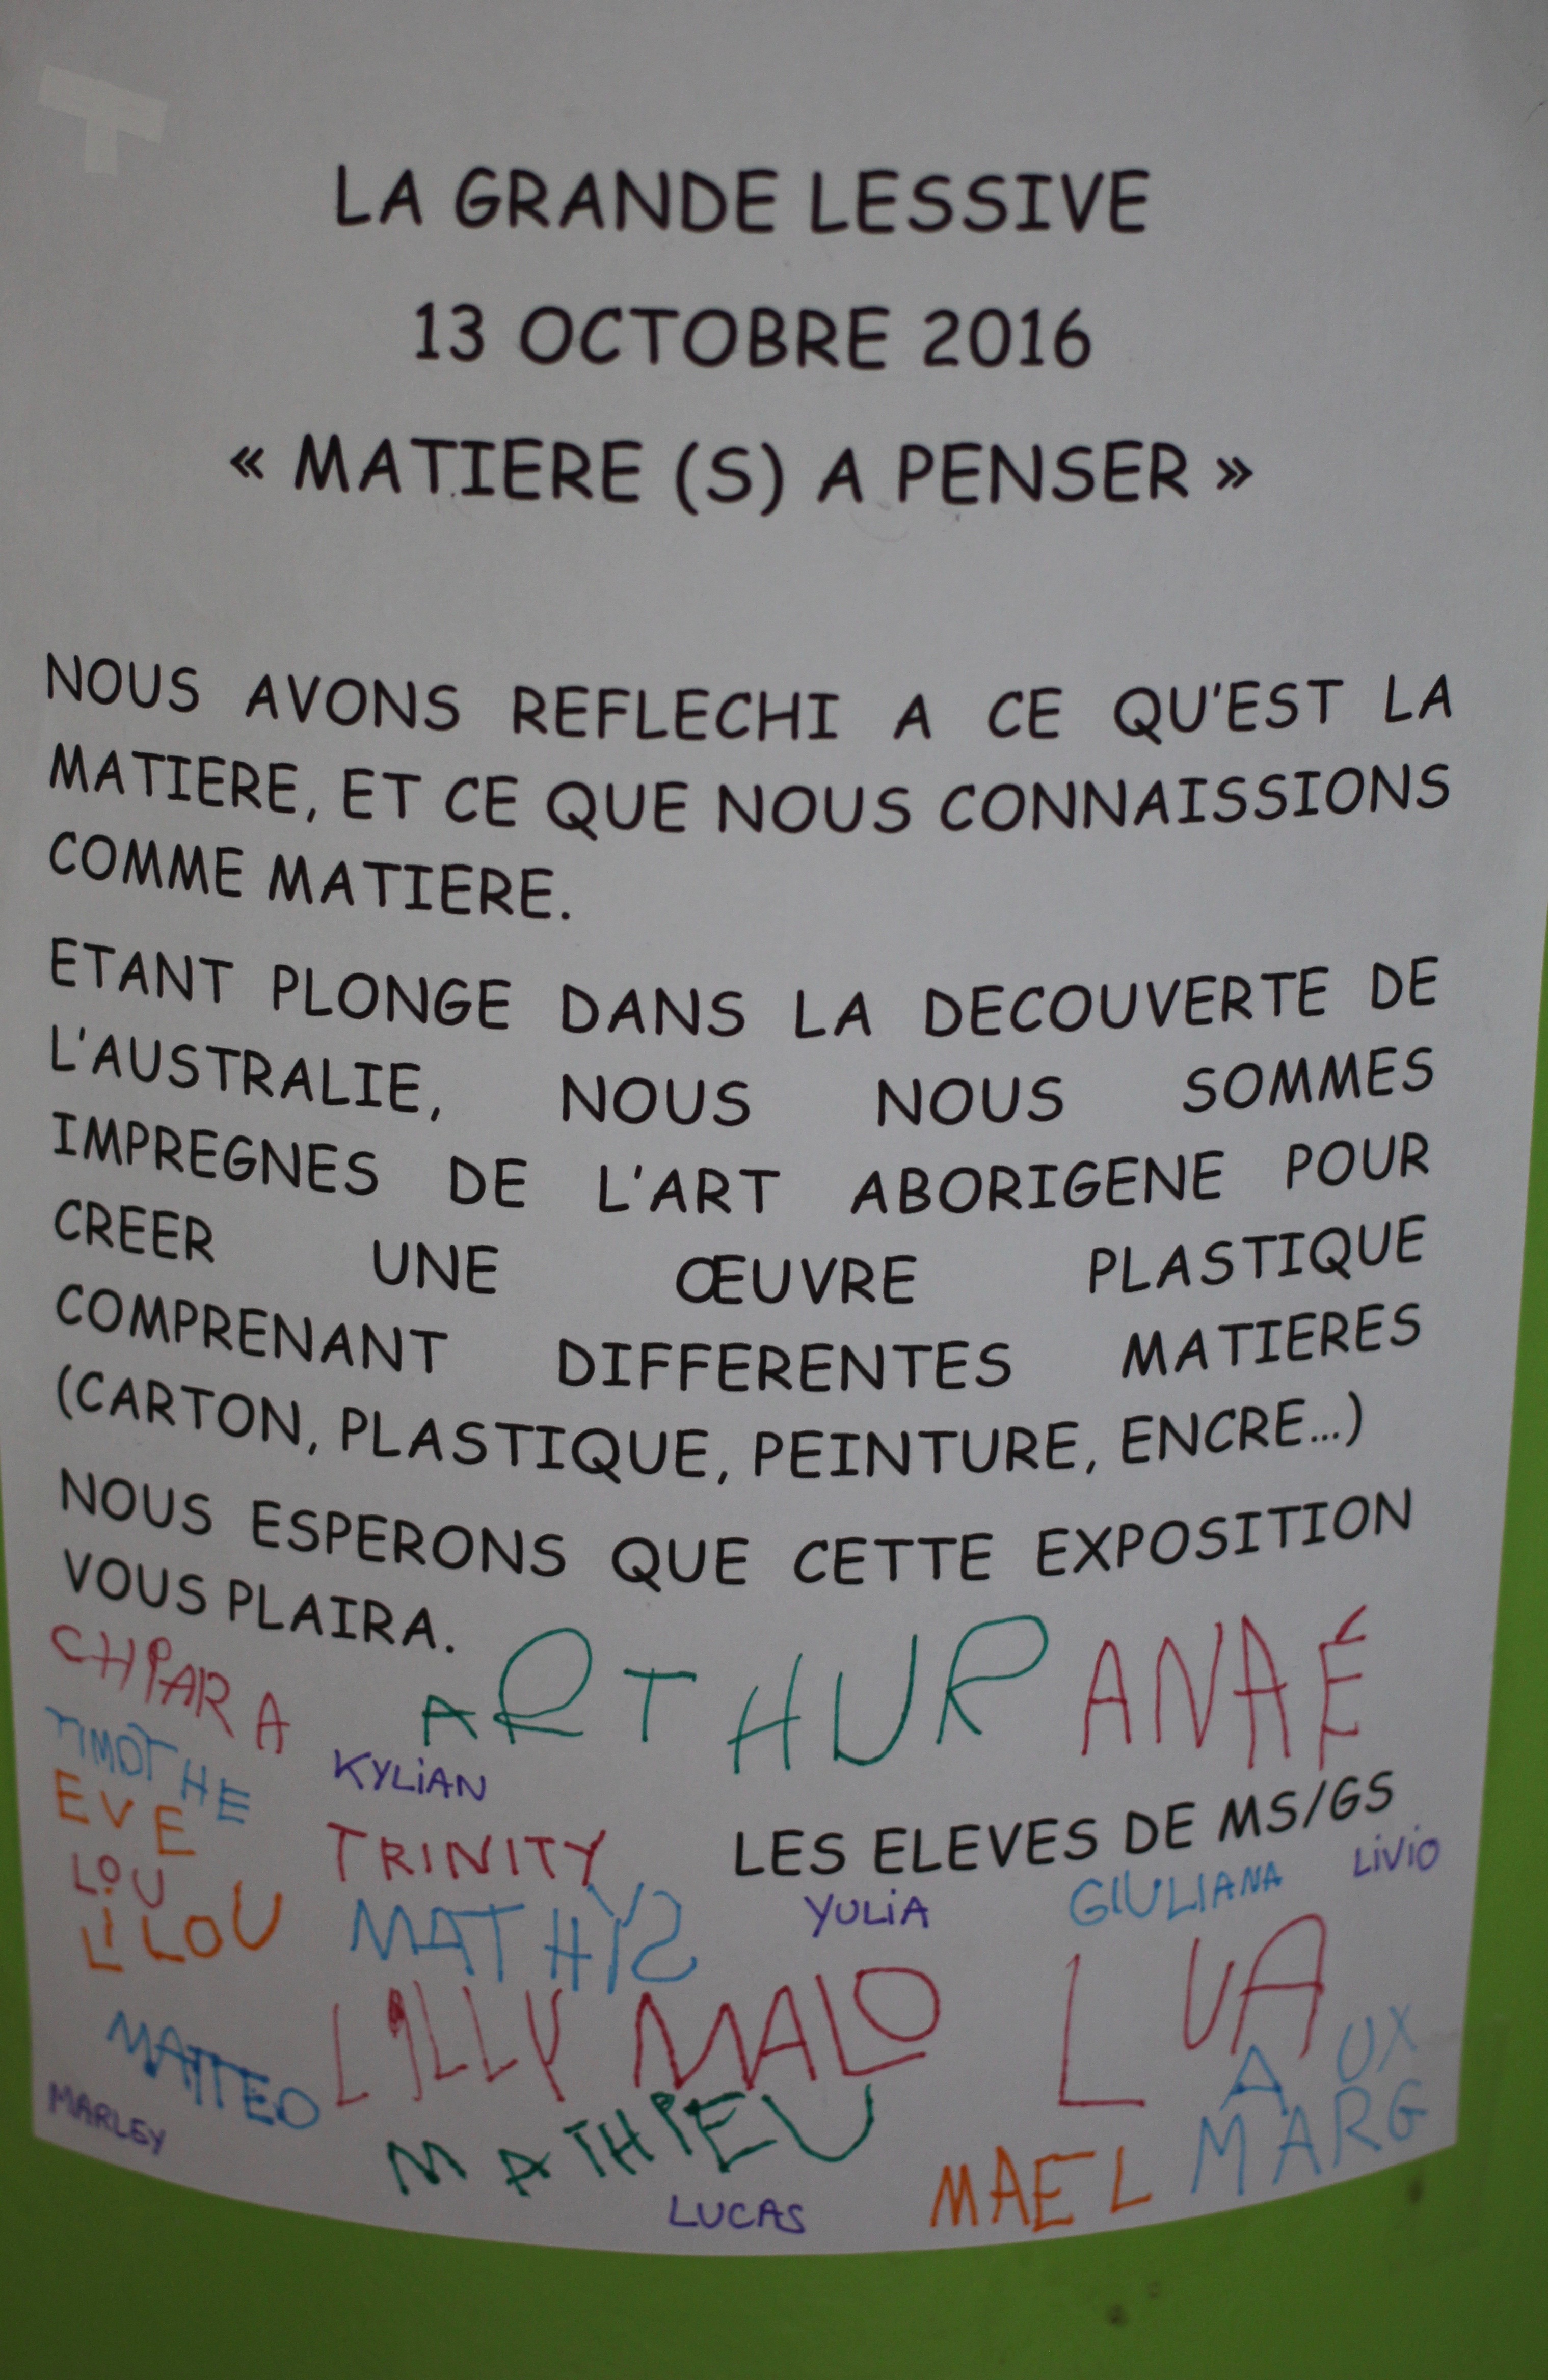 LA GRANDE LESSIVE
13 OCTOBRE 2016
« MATIERE (S) A PENSER »
NOUS AVONS REFLECHI A CE QU'EST LA
MATIERE, ET CE QUE NOUS CONNAISSIONS
COMME MATIERE.
ETANT PLONGE DANS LA DECOUVERTE DE
L'AUSTRALIE, NOUS NOUS SOMMES
IMPREGNES DE L'ART ABORIGENE POUR
CREER UNE ŒUVRE PLASTIQUE
COMPRENANT DIFFERENTES MATIERES
(CARTON, PLASTIQUE, PEINTURE, ENCRE...)
NOUS ESPERONS QUE CETTE EXPOSITION
VOUS PLAIRA.
ARTHUR
ANAÉ
TIMOTHE
KYLiAN
EVE
TRINITY
LES ELEVES DE MS/GS
LiViO
LOU
LILOU
MATHYS
YULiA
GIULIANA
LILLY
MALO
LUA
MATTEO
MARLEY
MATHIEU
LUCAS
MAEL
A UX
MARG